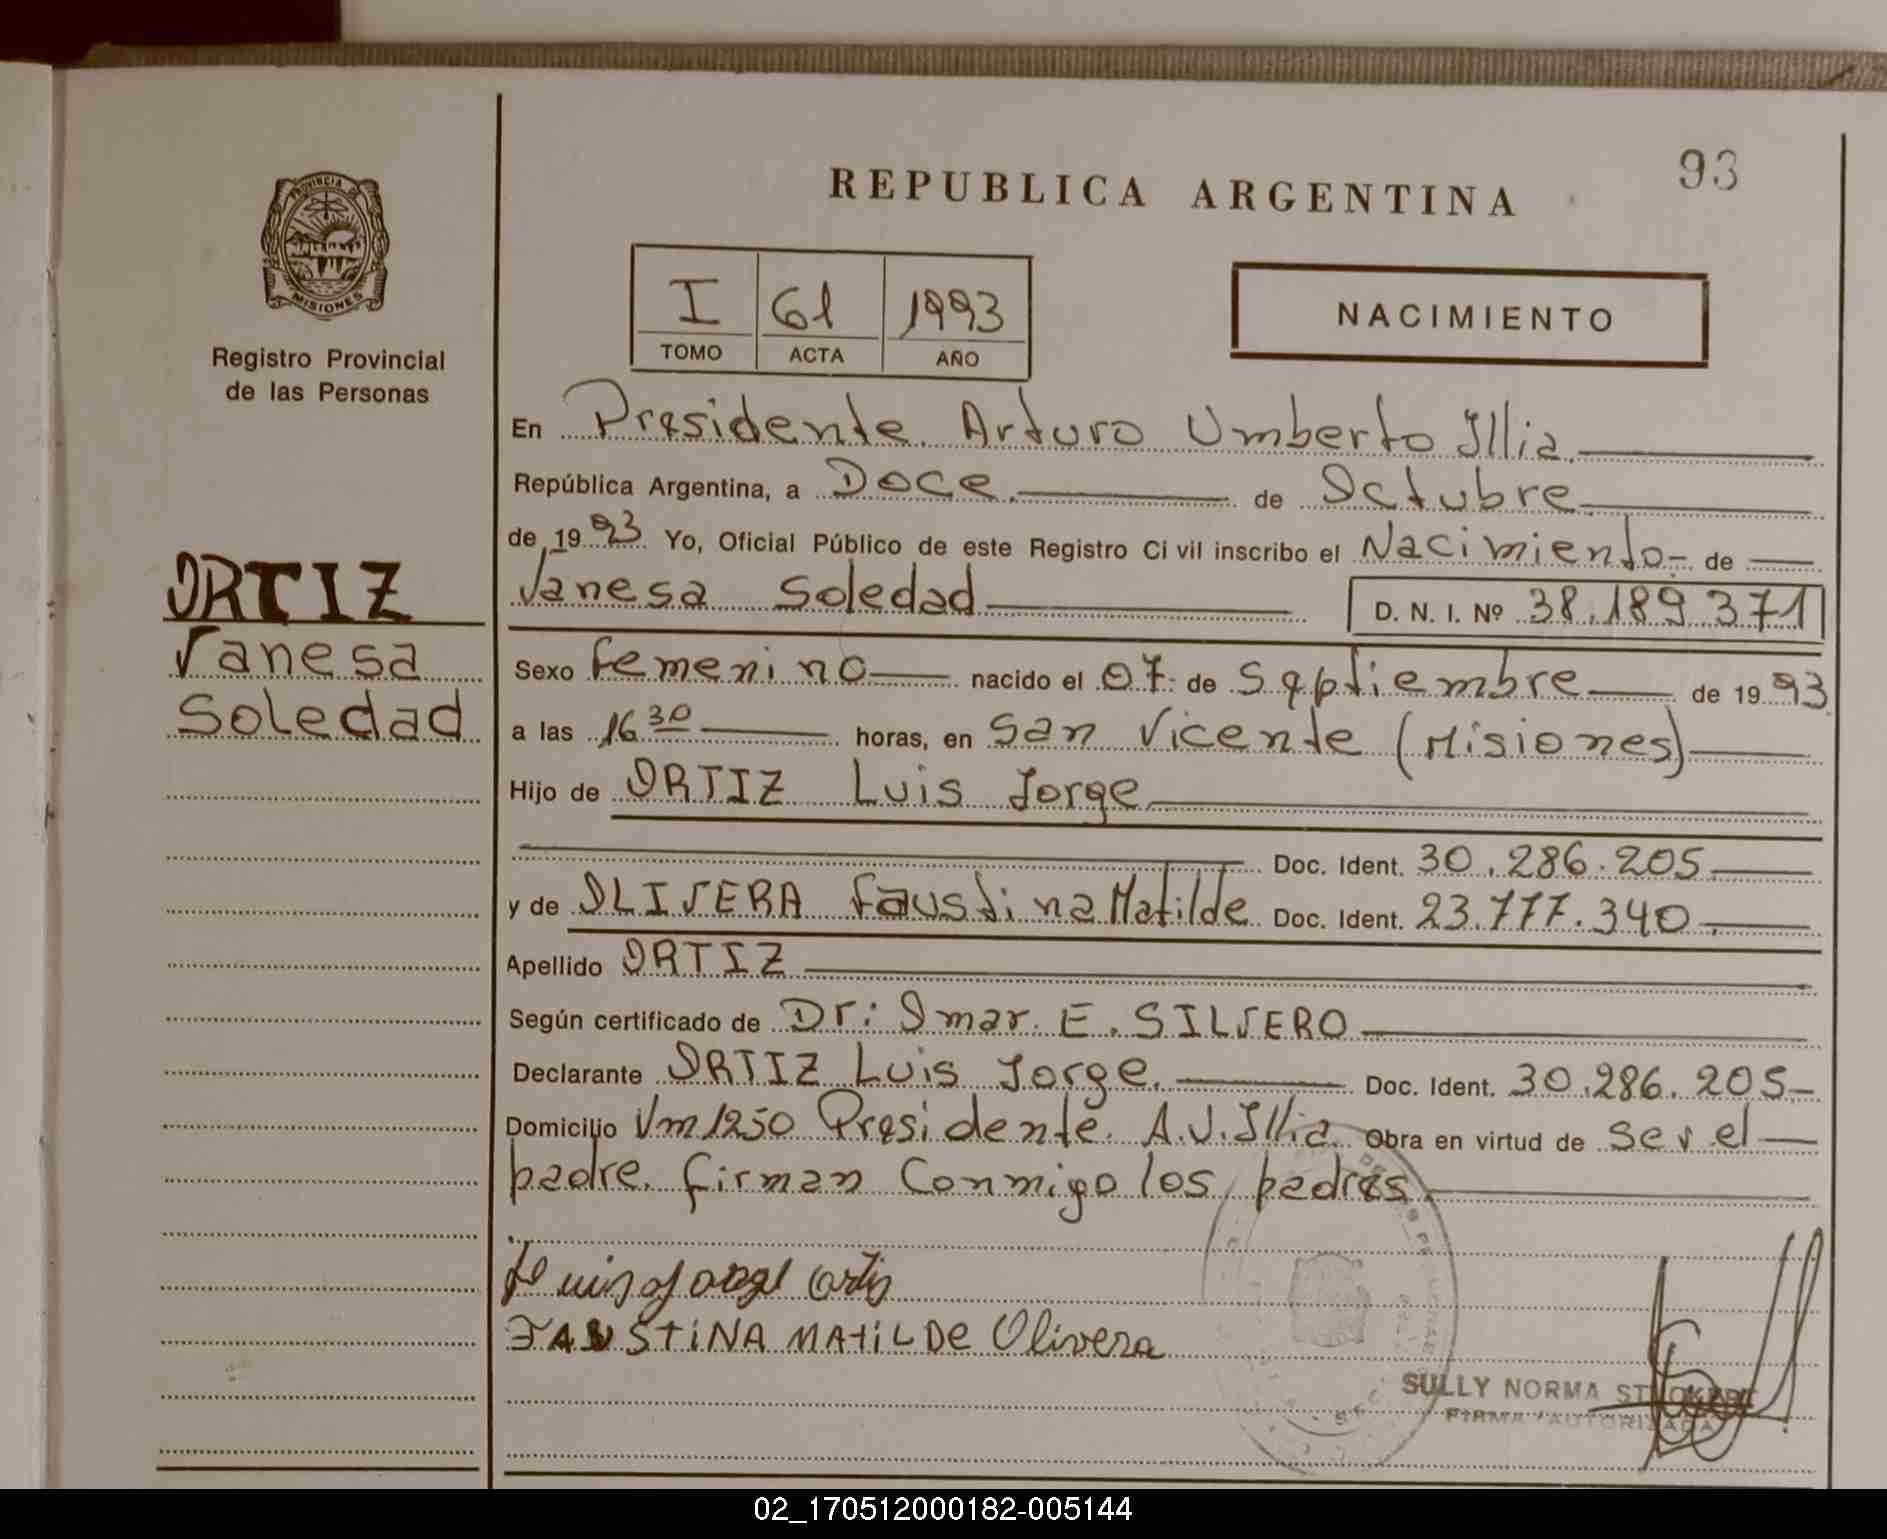 93
REPUBLICA ARGENTINA
PROVINCIA DE
MISIONES
Registro Provincial
de las Personas
I 61 1993
TOMO ACTA AÑO
NACIMIENTO
En Presidente Arturo Umberto Illia
República Argentina, a Doce de Octubre
de 1993 Yo, Oficial Público de este Registro Civil inscribo el Nacimiento de
Vanesa Soledad D. N. I. Nº 38.189.371
ORTIZ
Vanesa
Soledad
Sexo femenino nacido el 07 de Septiembre de 1993
a las 16 30 horas, en San Vicente (Misiones)
Hijo de ORTIZ Luis Jorge
Doc. Ident. 30.286.205
y de OLIVERA Faustina Matilde Doc. Ident. 23.777.340
Apellido ORTIZ
Según certificado de Dr: Omar E. SILVERO
Declarante ORTIZ Luis Jorge Doc. Ident. 30.286.205
Domicilio Vm 1250 Presidente A.U. Illia Obra en virtud de ser el
padre. firman Conmigo los padres
Luis Jorge Ortiz
FAUSTiNA MAtiLDe Olivera
SULLY NORMA
FIRMA AUTORIZADA
02_170512000182-005144